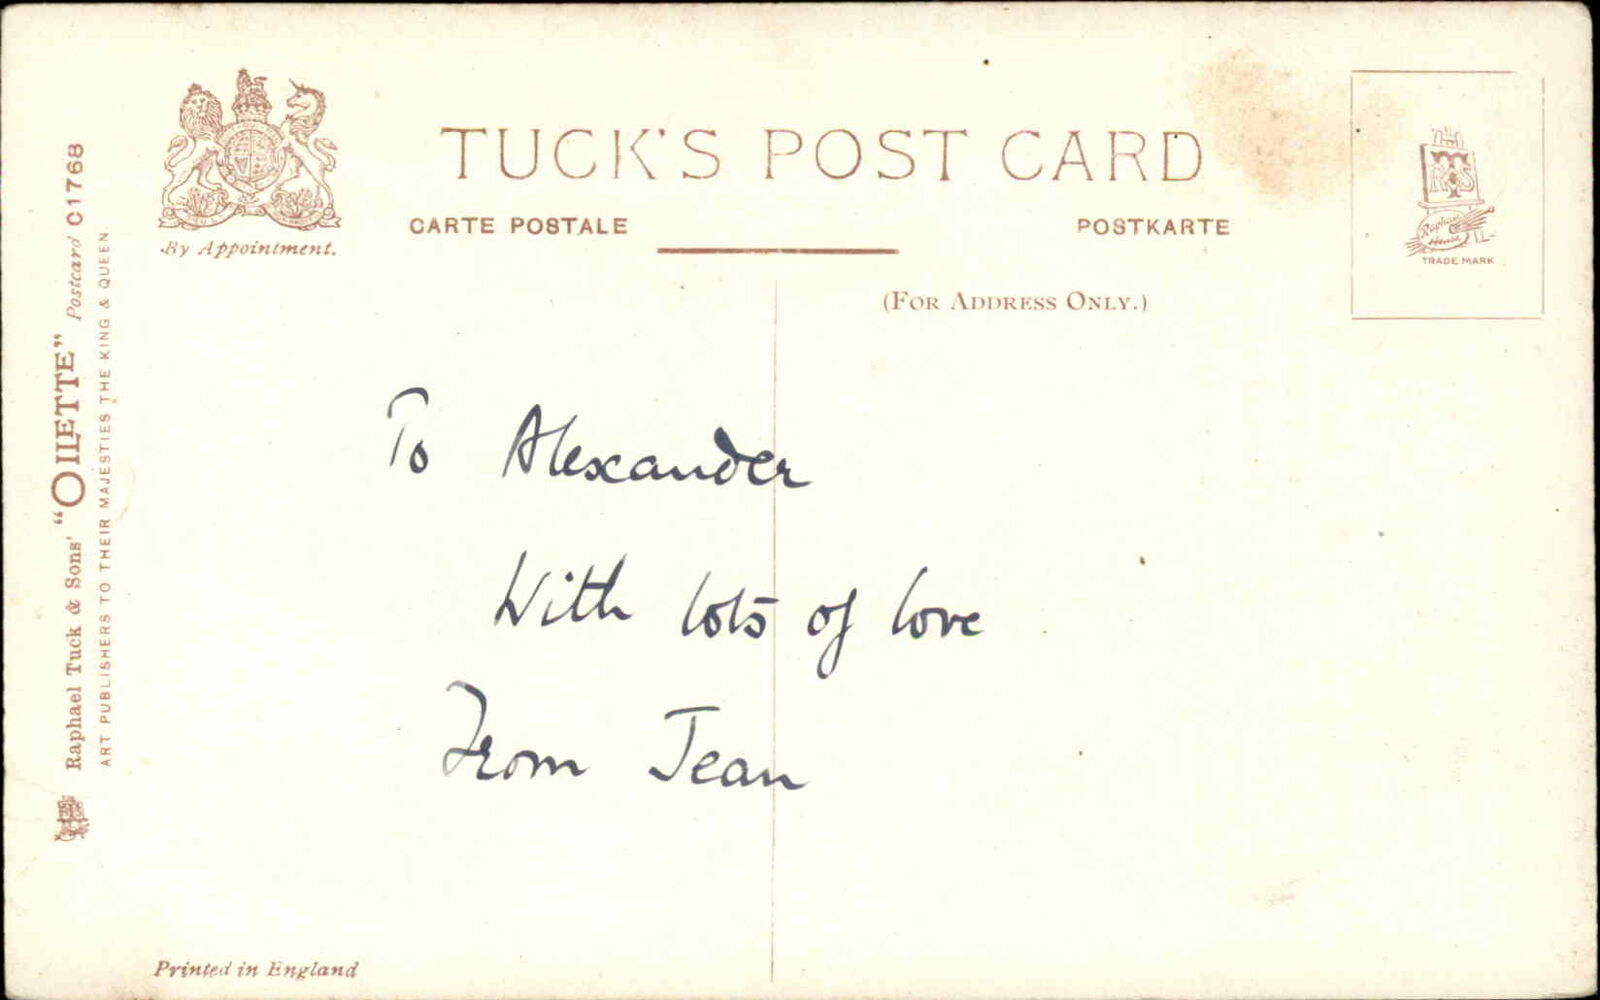 TUCK'S POST CARD
CARTE POSTALE
POSTKARTE
By Appointment.
(FOR ADDRESS ONLY.)
TRADE MARK
Raphael House
Raphael Tuck & Sons' "OILETTE" Postcard C1768
ART PUBLISHERS TO THEIR MAJESTIES THE KING & QUEEN
To Alexander
With lots of love
From Jean
Printed in England